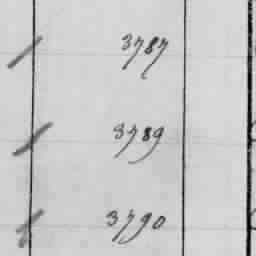 3787
3789
3790